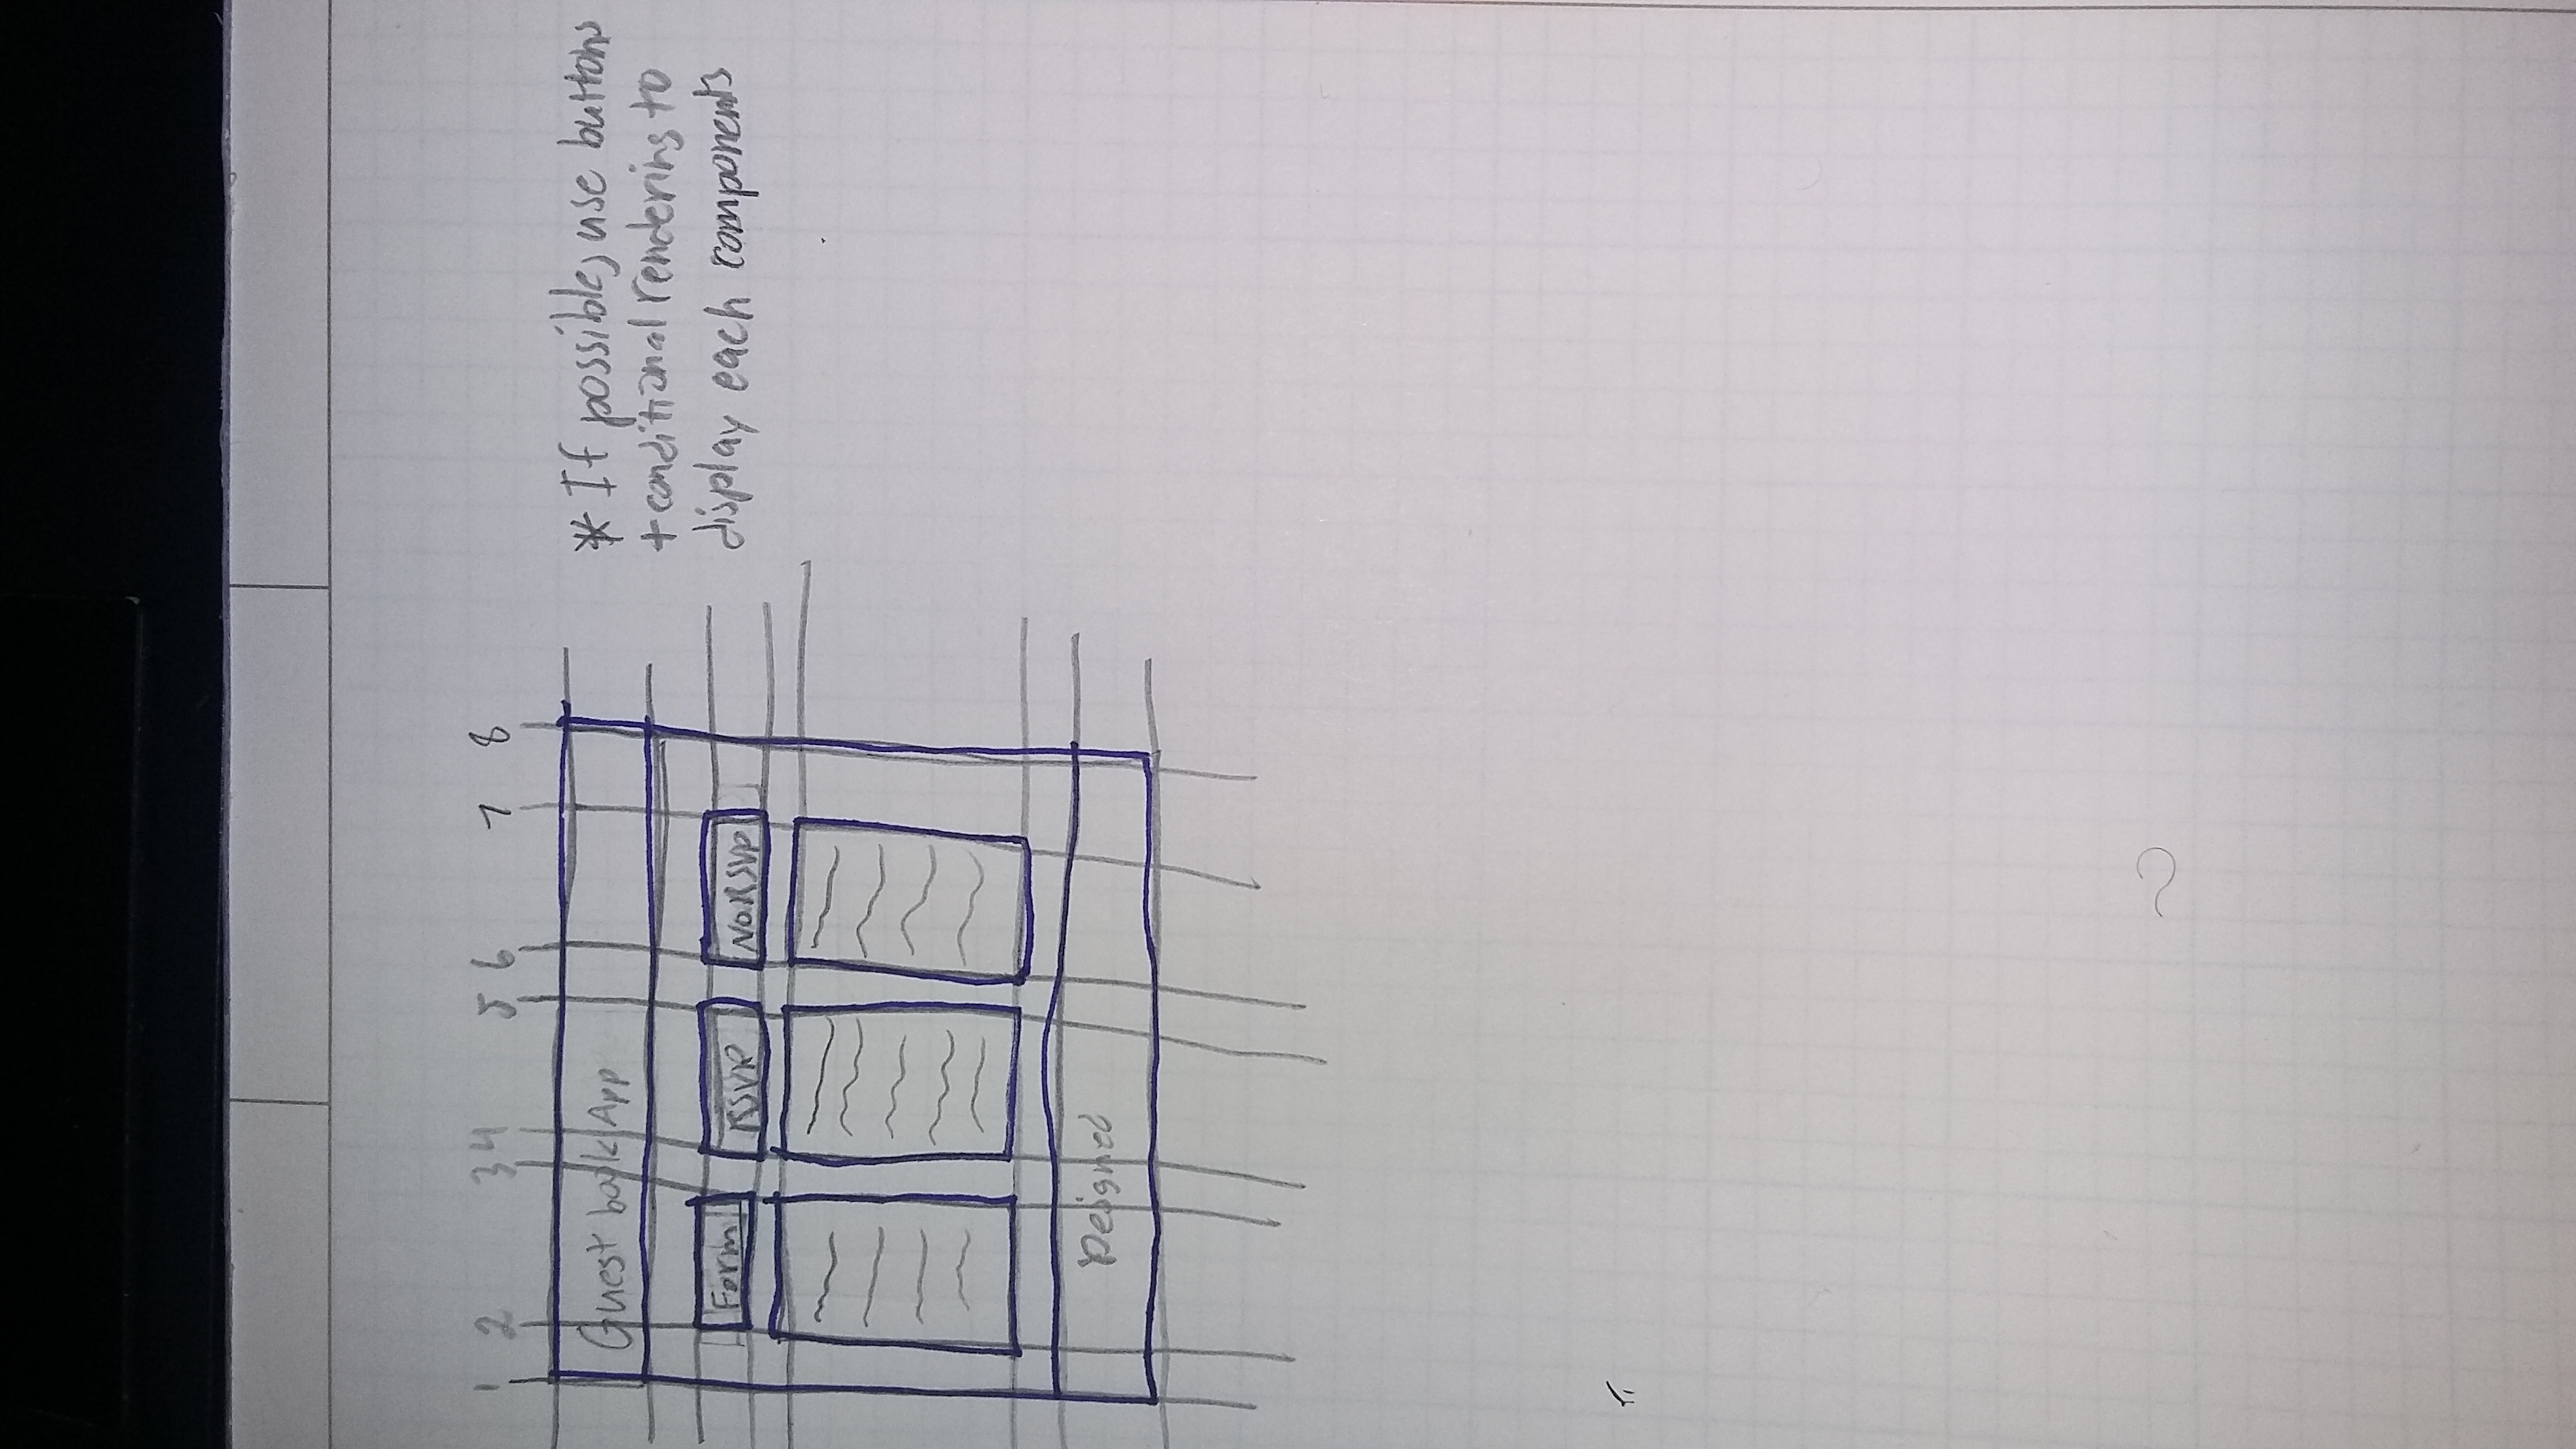 1 2 3 4 5 6 7 8
Guest book App
Form RSVP No RSVP
Deigned
* If possible, use buttons
+ conditional rendering to
display each components